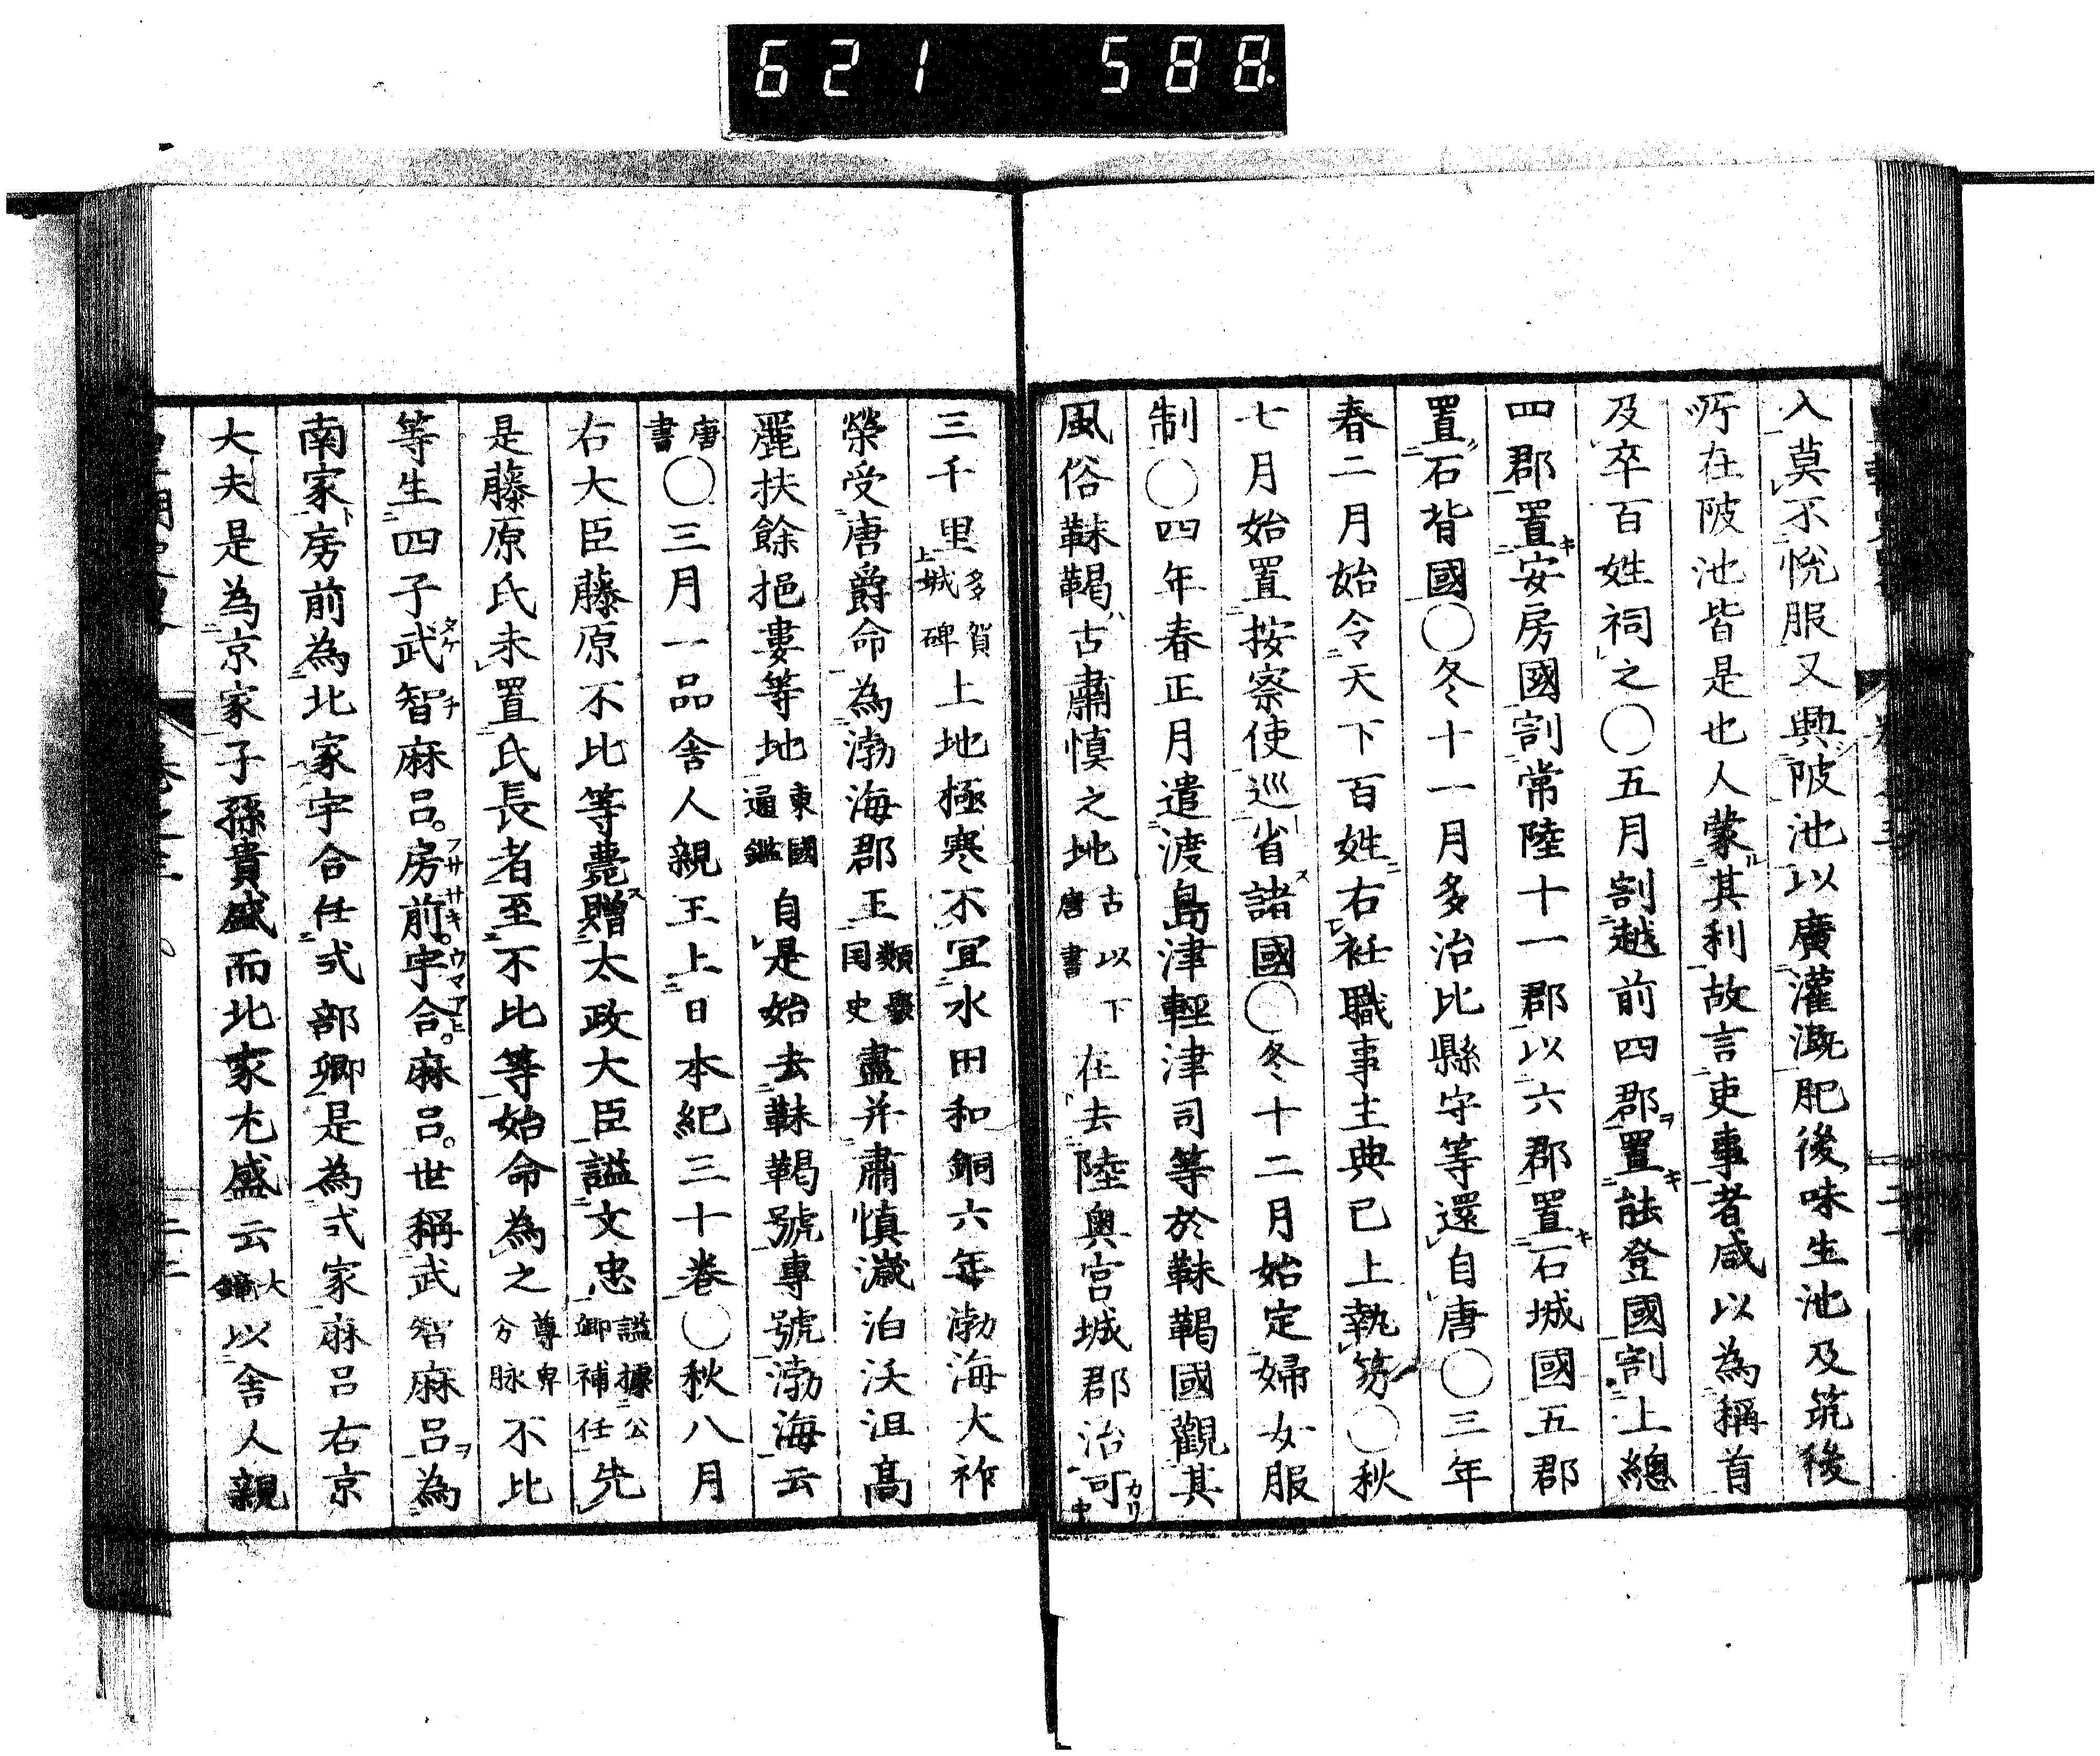 621 588.
入莫不悅服又興陂池以廣灌漑肥後味生池及筑後
所在陂池皆是也人蒙其利故言吏事者咸以為稱首
及卒百姓祠之○五月割越前四郡置能登國割上總
四郡置安房國割常陸十一郡以六郡置石城國五郡
置石背國○冬十一月多治比縣守等還自唐○三年
春二月始令天下百姓右衽職事主典已上執笏○秋
七月始置按察使巡省諸國○冬十二月始定婦女服
制○四年春正月遣渡島津輕津司等於靺鞨國觀其
風俗靺鞨古肅慎之地古以下唐書在去陸奧宮城郡治可
三千里多賀上城碑上地極寒不宜水田和銅六年渤海大祚
榮受唐爵命為渤海郡王類聚国史盡并肅慎濊泊沃沮高
麗扶餘挹婁等地東國通鑑自是始去靺鞨號專號渤海云
唐書○三月一品舍人親王上日本紀三十卷○秋八月
右大臣藤原不比等薨贈太政大臣謚文忠謚據公卿補任先
是藤原氏未置氏長者至不比等始命為之尊卑分脉不比
等生四子武智麻呂。房前。宇合。麻呂。世稱武智麻呂為
南家房前為北家宇合任式部卿是為式家麻呂右京
大夫是為京家子孫貴盛而北家尤盛云大鏡以舍人親